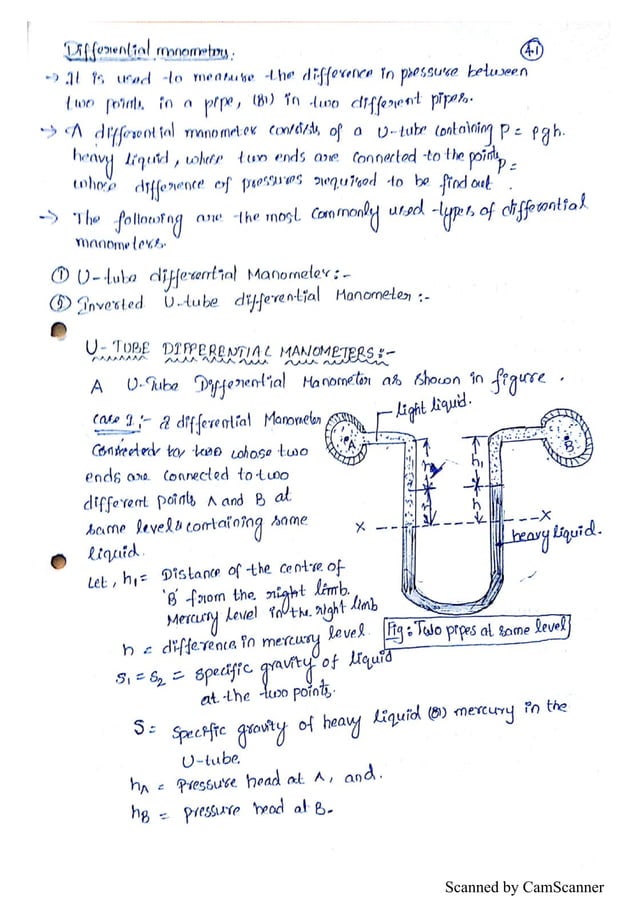 Differential manometers.
41
→ It is used to measure the difference in pressure between
two points in a pipe, (or) in two different pipes.
→ A differential manometer consists of a U-tube containing P = ρgh.
heavy liquid, where two ends are connected to the points, P =
whose difference of pressures required to be find out.
→ The following are the most commonly used types of differential
manometers.
① U-tube differential Manometer:-
② Inverted U-tube differential Manometer:-
U-TUBE DIFFERENTIAL MANOMETERS:-
A U-Tube Differential Manometer as shown in figure.
Case 1:- a differential Manometer
Connected to two whose two
ends are connected to two
different points A and B at
same level & containing same
liquid.
light liquid.
A
B
h₁
h
X
X
heavy liquid.
Fig: Two pipes at same level
Let, h₁ = Distance of the centre of
'B' from the right limb.
Mercury level in the right limb
h = difference in mercury level.
S₁ = S₂ = specific gravity of liquid
at the two points.
S = Specific gravity of heavy liquid (or) mercury in the
U-tube.
hA = Pressure head at A, and.
hB = pressure head at B.
Scanned by CamScanner